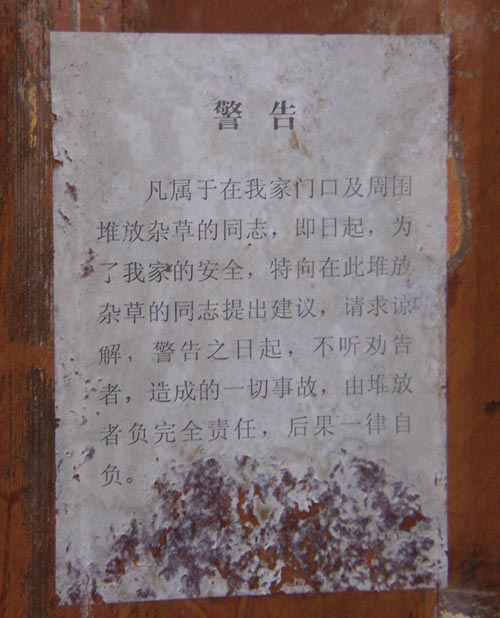 警告
凡属于在我家门口及周围
堆放杂草的同志，即日起，为
了我家的安全，特向在此堆放
杂草的同志提出建议，请求谅
解，警告之日起，不听劝告
者，造成的一切事故，由堆放
者负完全责任，后果一律自
负。